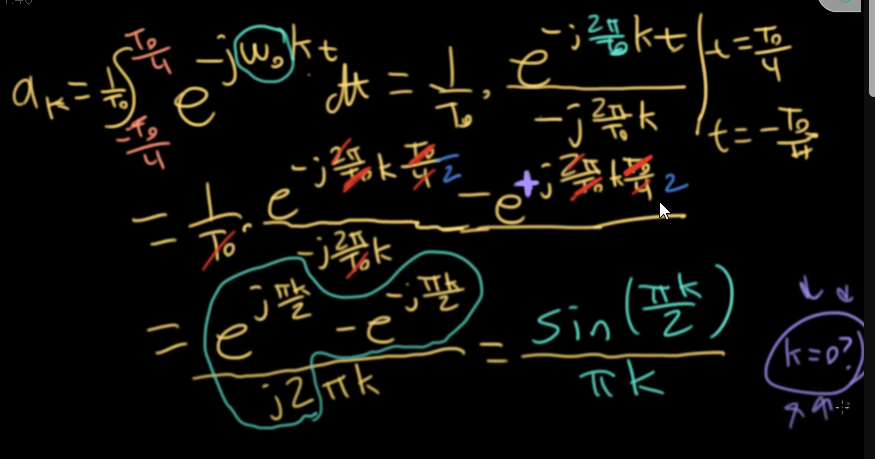 1:40
a_k = 1/T₀ ∫_{-T₀/4}^{T₀/4} e^{-jω₀kt} dt = 1/T₀ · e^{-j 2π/T₀ kt} / (-j 2π/T₀ k) | t = T₀/4, t = -T₀/4
= 1/T₀ · (e^{-j 2π/T₀ k T₀/4 2} - e^{+j 2π/T₀ k T₀/4 2}) / (-j 2π/T₀ k)
= (e^{j πk/2} - e^{-j πk/2}) / (j2πk) = sin(πk/2) / (πk) k=0?